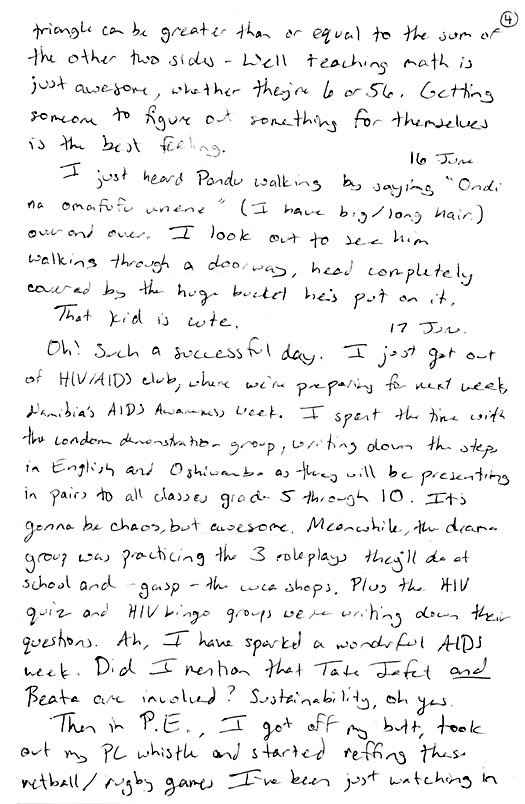 ④
triangle can be greater than or equal to the sum of
the other two sides - Well teaching math is
just awesome, whether they're 6 or 56. Getting
someone to figure out something for themselves
is the best feeling.
16 June
I just heard Pandu walking by saying "Ondi
na omafufu unene" (I have big/long hair.)
over and over. I look out to see him
walking through a doorway, head completely
covered by the huge bucket he's put on it.
That kid is cute.
17 June.
Oh! Such a successful day. I just got out
of HIV/AIDS club, where we're preparing for next week,
Namibia's AIDS Awareness Week. I spent the time with
the condom demonstration group, writing down the steps
in English and Oshiwambo as they will be presenting
in pairs to all classes grade 5 through 10. It's
gonna be chaos, but awesome. Meanwhile, the drama
group was practicing the 3 roleplays they'll do at
school and - gasp - the cuca shops. Plus the HIV
quiz and HIV bingo groups were writing down their
questions. Ah, I have sparked a wonderful AIDS
week. Did I mention that Tate Jafet and
Beata are involved? Sustainability, oh yes.
Then in P.E., I got off my butt, took
out my PC whistle and started reffing these
netball/rugby games I've been just watching in